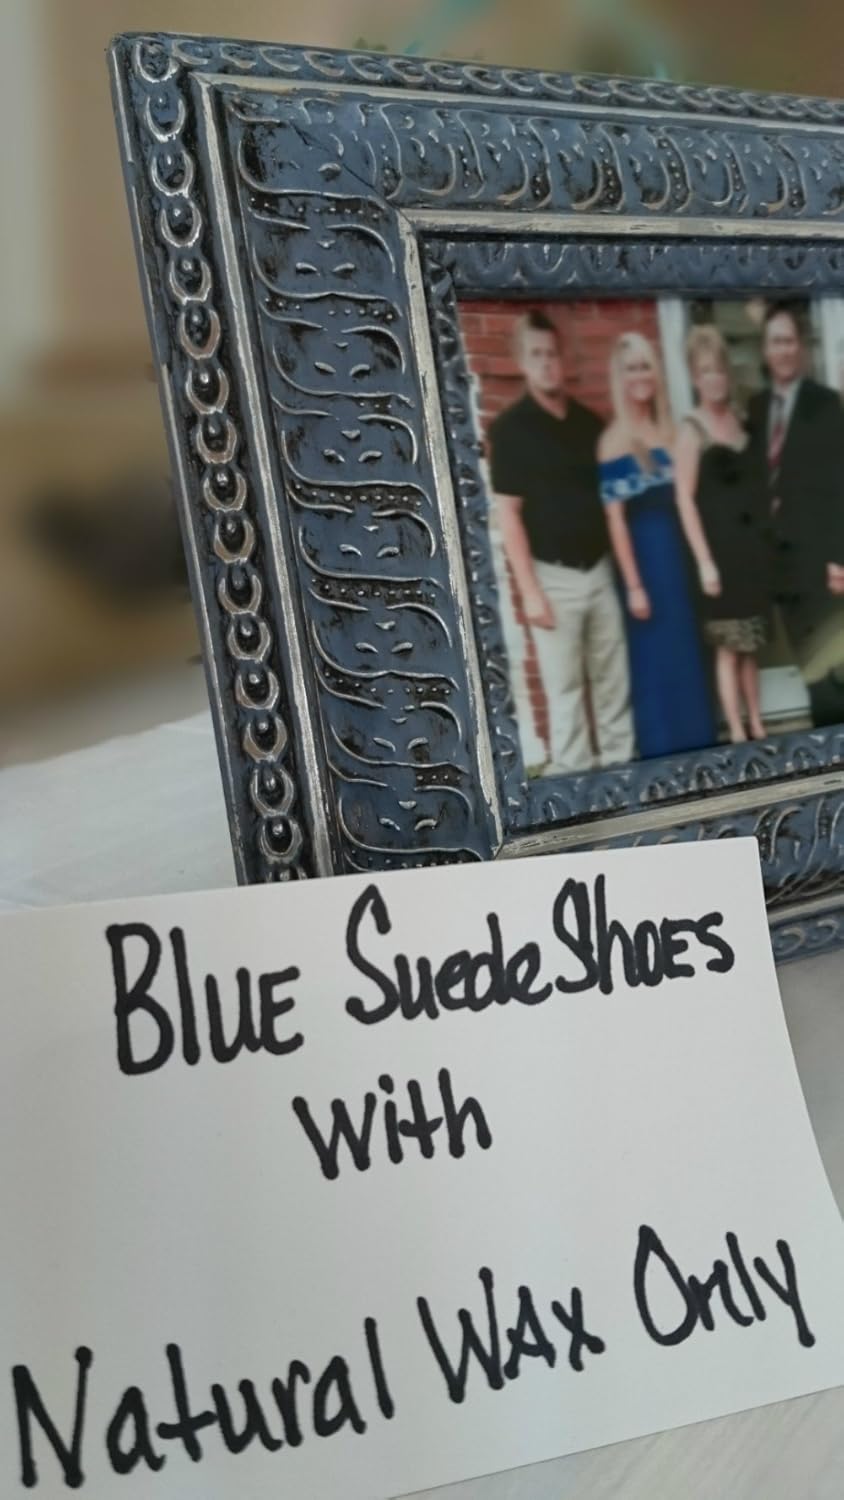 BluE SuedeShOES
With
Natural WAx Only